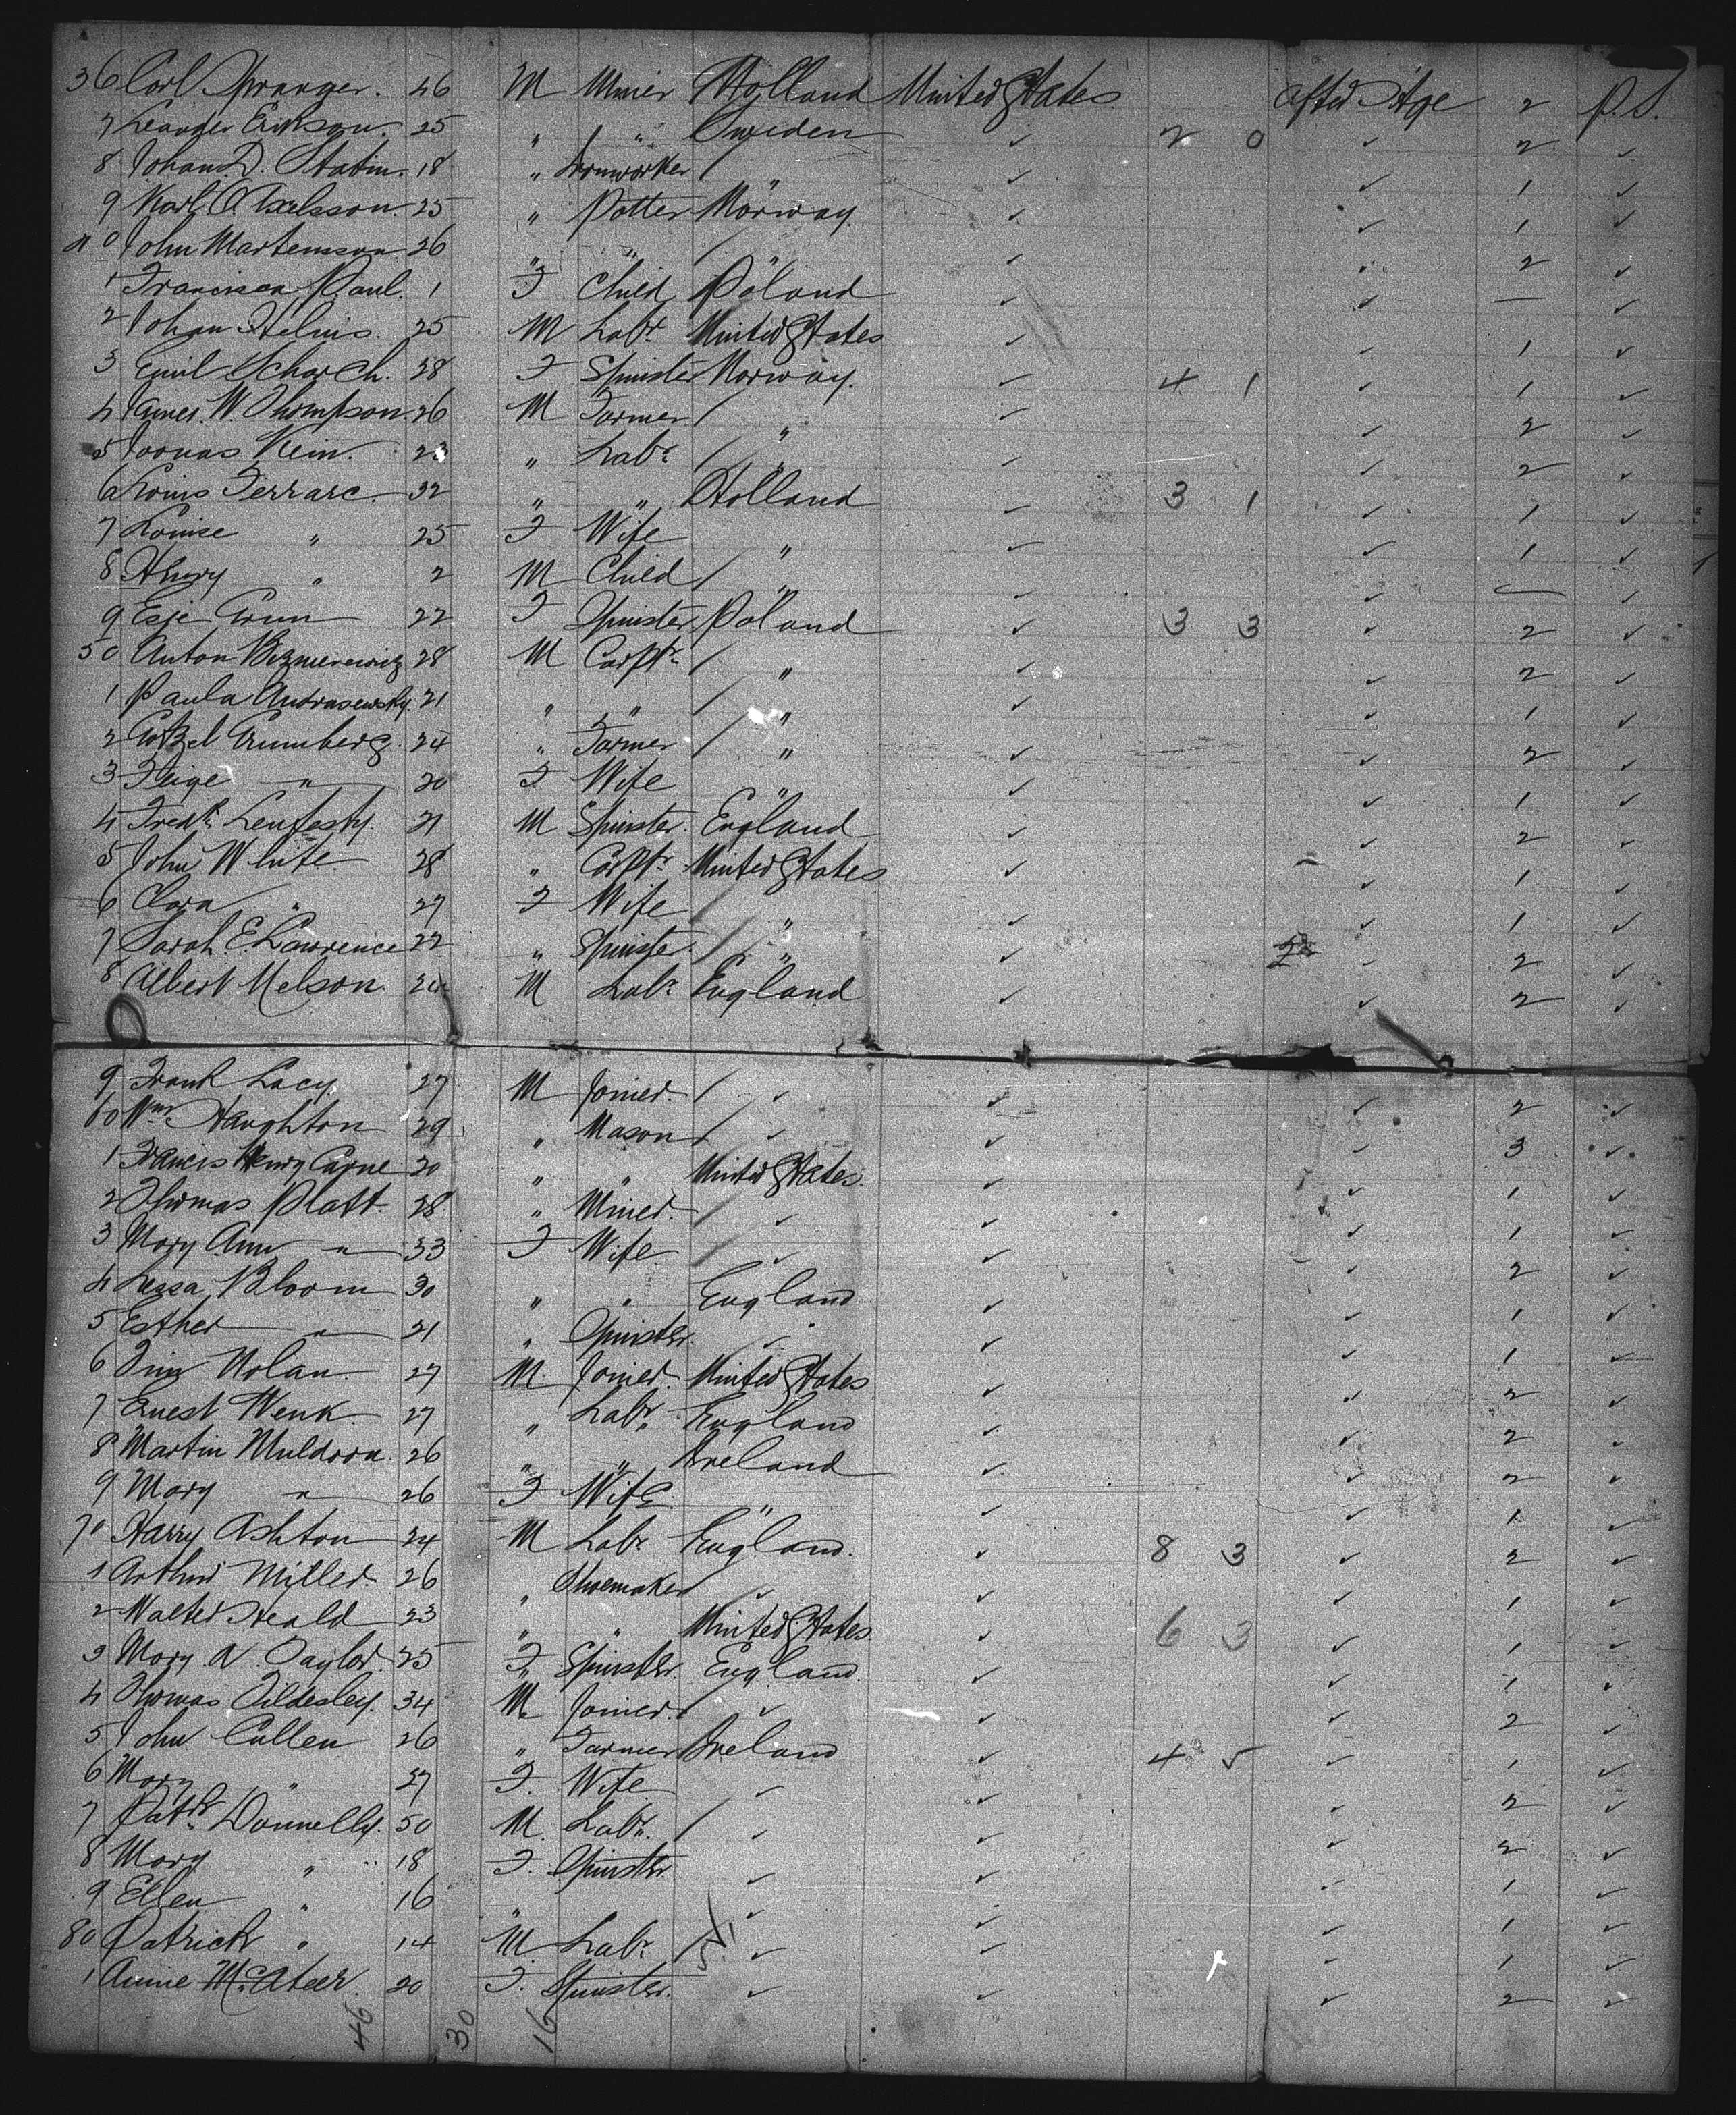 36 Carl Spranger. 46 M Miner Holland United States After Age 2 P.S.
7 Leander Erikson. 25 " " Sweden ✓ 2 0 ✓ 2 ✓
8 Johan D. Statin. 18 " Ironworker / " ✓ ✓ 1 ✓
9 Karl Axelsson. 25 " Potter Norway. ✓ ✓ 1 ✓
40 John Martenson 26 " " / " ✓ ✓ 2 ✓
1 Paul. 1 F Child Poland ✓ ✓ — ✓
2 Johan Helms. 25 M Labr. United States ✓ ✓ 1 ✓
3 Emil Scharch. 28 F Spinster Norway. ✓ 4 1 ✓ 1 ✓
4 James W. Thompson 26 M Farmer / " ✓ ✓ 2 ✓
5 Joonas Kein. 23 " Labr. / " ✓ ✓ 2 ✓
6 Louis Ferrarc. 32 " " Holland ✓ 3 1 ✓ 1 ✓
7 Louise " 25 F Wife " ✓ ✓ 1 ✓
8 Henry " 2 M Child / " ✓ ✓ — ✓
9 Esje 22 F Spinster Poland ✓ 3 3 ✓ 2 ✓
50 Anton 28 M Carptr / " ✓ ✓ 2 ✓
1 Paula Andrasewsky. 21 " " / " ✓ ✓ 1 ✓
2 Grumberg. 24 " Farmer / " ✓ ✓ 2 ✓
3 Feige " 20 F Wife " ✓ ✓ 1 ✓
4 Fredk. Lenfesty. 21 M Spinster. England ✓ ✓ 2 ✓
5 John White 28 " Carptr United States ✓ ✓ 1 ✓
6 Clara " 27 F Wife / " ✓ ✓ 1 ✓
7 Sarah E. Lawrence 22 " Spinster. / " ✓ ✓ 2 ✓
8 Albert Nelson. 24 M Labr. England ✓ ✓ 2 ✓
9 Frank Lacy. 27 M Joiner / ✓ ✓ ✓ 2 ✓
60 Wm. Haughton 29 " Mason / ✓ ✓ ✓ 3 ✓
1 Francis Henry Carne 20 " " United States ✓ ✓ 1 ✓
2 Thomas Platt 28 " Miner. / ✓ ✓ ✓ 1 ✓
3 Mary Ann " 33 F Wife / ✓ ✓ ✓ 2 ✓
4 Bloom 30 " " England ✓ ✓ 1 ✓
5 Esther " 21 " Spinster. ✓ ✓ ✓ 1 ✓
6 Tim Nolan. 27 M Joiner. United States ✓ ✓ 2 ✓
7 Ernest Wenk. 27 " Labr. England ✓ ✓ 2 ✓
8 Martin Muldoon. 26 " " Ireland ✓ ✓ 2 ✓
9 Mary " 26 F Wife " ✓ ✓ 1 ✓
70 Harry Ashton 24 M Labr. England. ✓ 8 3 ✓ 2 ✓
1 Arthur Miller. 26 " Shoemaker / ✓ ✓ ✓ 1 ✓
2 Walter Heald 23 " " United States. ✓ 6 3 ✓ 1 ✓
3 Mary A Taylor. 25 F Spinster. England. ✓ ✓ 1 ✓
4 Thomas Tildesley. 34 M Joiner. / ✓ ✓ ✓ 2 ✓
5 John Cullen 26 " Farmer Ireland ✓ 4 5 ✓ 1 ✓
6 Mary " 27 F Wife ✓ ✓ ✓ 2 ✓
7 Patk. Donnelly. 50 M. Labr. / ✓ ✓ ✓ 2 ✓
8 Mary " 18 F. Spinster. ✓ ✓ ✓ 1 ✓
9 Ellen " 16 " ✓ ✓ ✓ 1 ✓
80 Patrick " 14 M Labr. / ✓ ✓ ✓ 1 ✓
1 Annie McAteer. 20 F. Spinster. ✓ ✓ ✓ 2 ✓
46 30 16